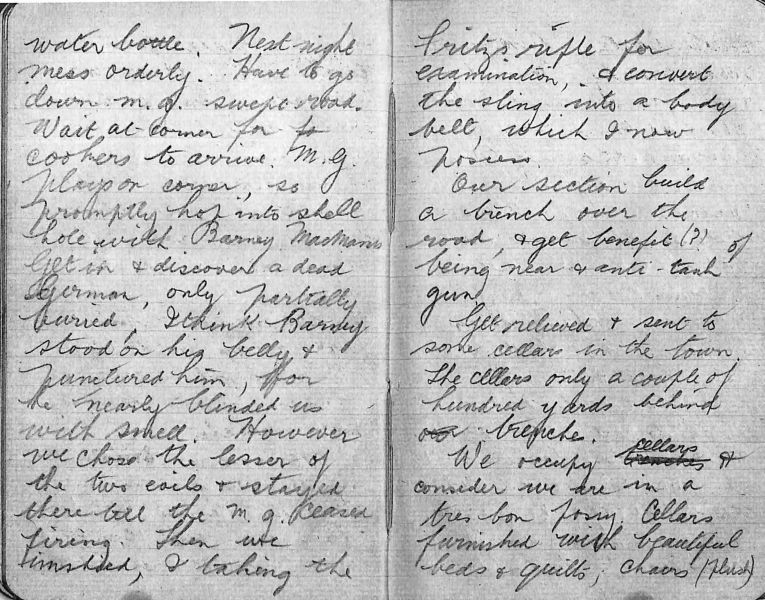 water bottle. Next night
mess orderly. Have to go
down m.g. swept road.
Wait at corner for
cookers to arrive. M.G.
plays on corner, so
promptly hop into shell
hole with Barney MacManus
Get in & discover a dead
German, only partially
buried. I think Barney
stood on his belly &
punctured him, for
he nearly blinded us
with smell. However
we chose the lesser of
the two evils & stayed
there till the m.g. ceased
firing. Then we
finished, & taking the
Fritz's rifle for
examination, & convert
the sling into a body
belt, which I now
possess.
Our section build
a trench over the
road, & get benefit (?) of
being near & anti-tank
gun.
Get relieved & sent to
some cellars in the town.
The cellars only a couple of
hundred yards behind
our trenches.
We occupy cellars trenches &
consider we are in a
tres bon possy. Cellars
furnished with beautiful
beds & quilts, chairs (plush)